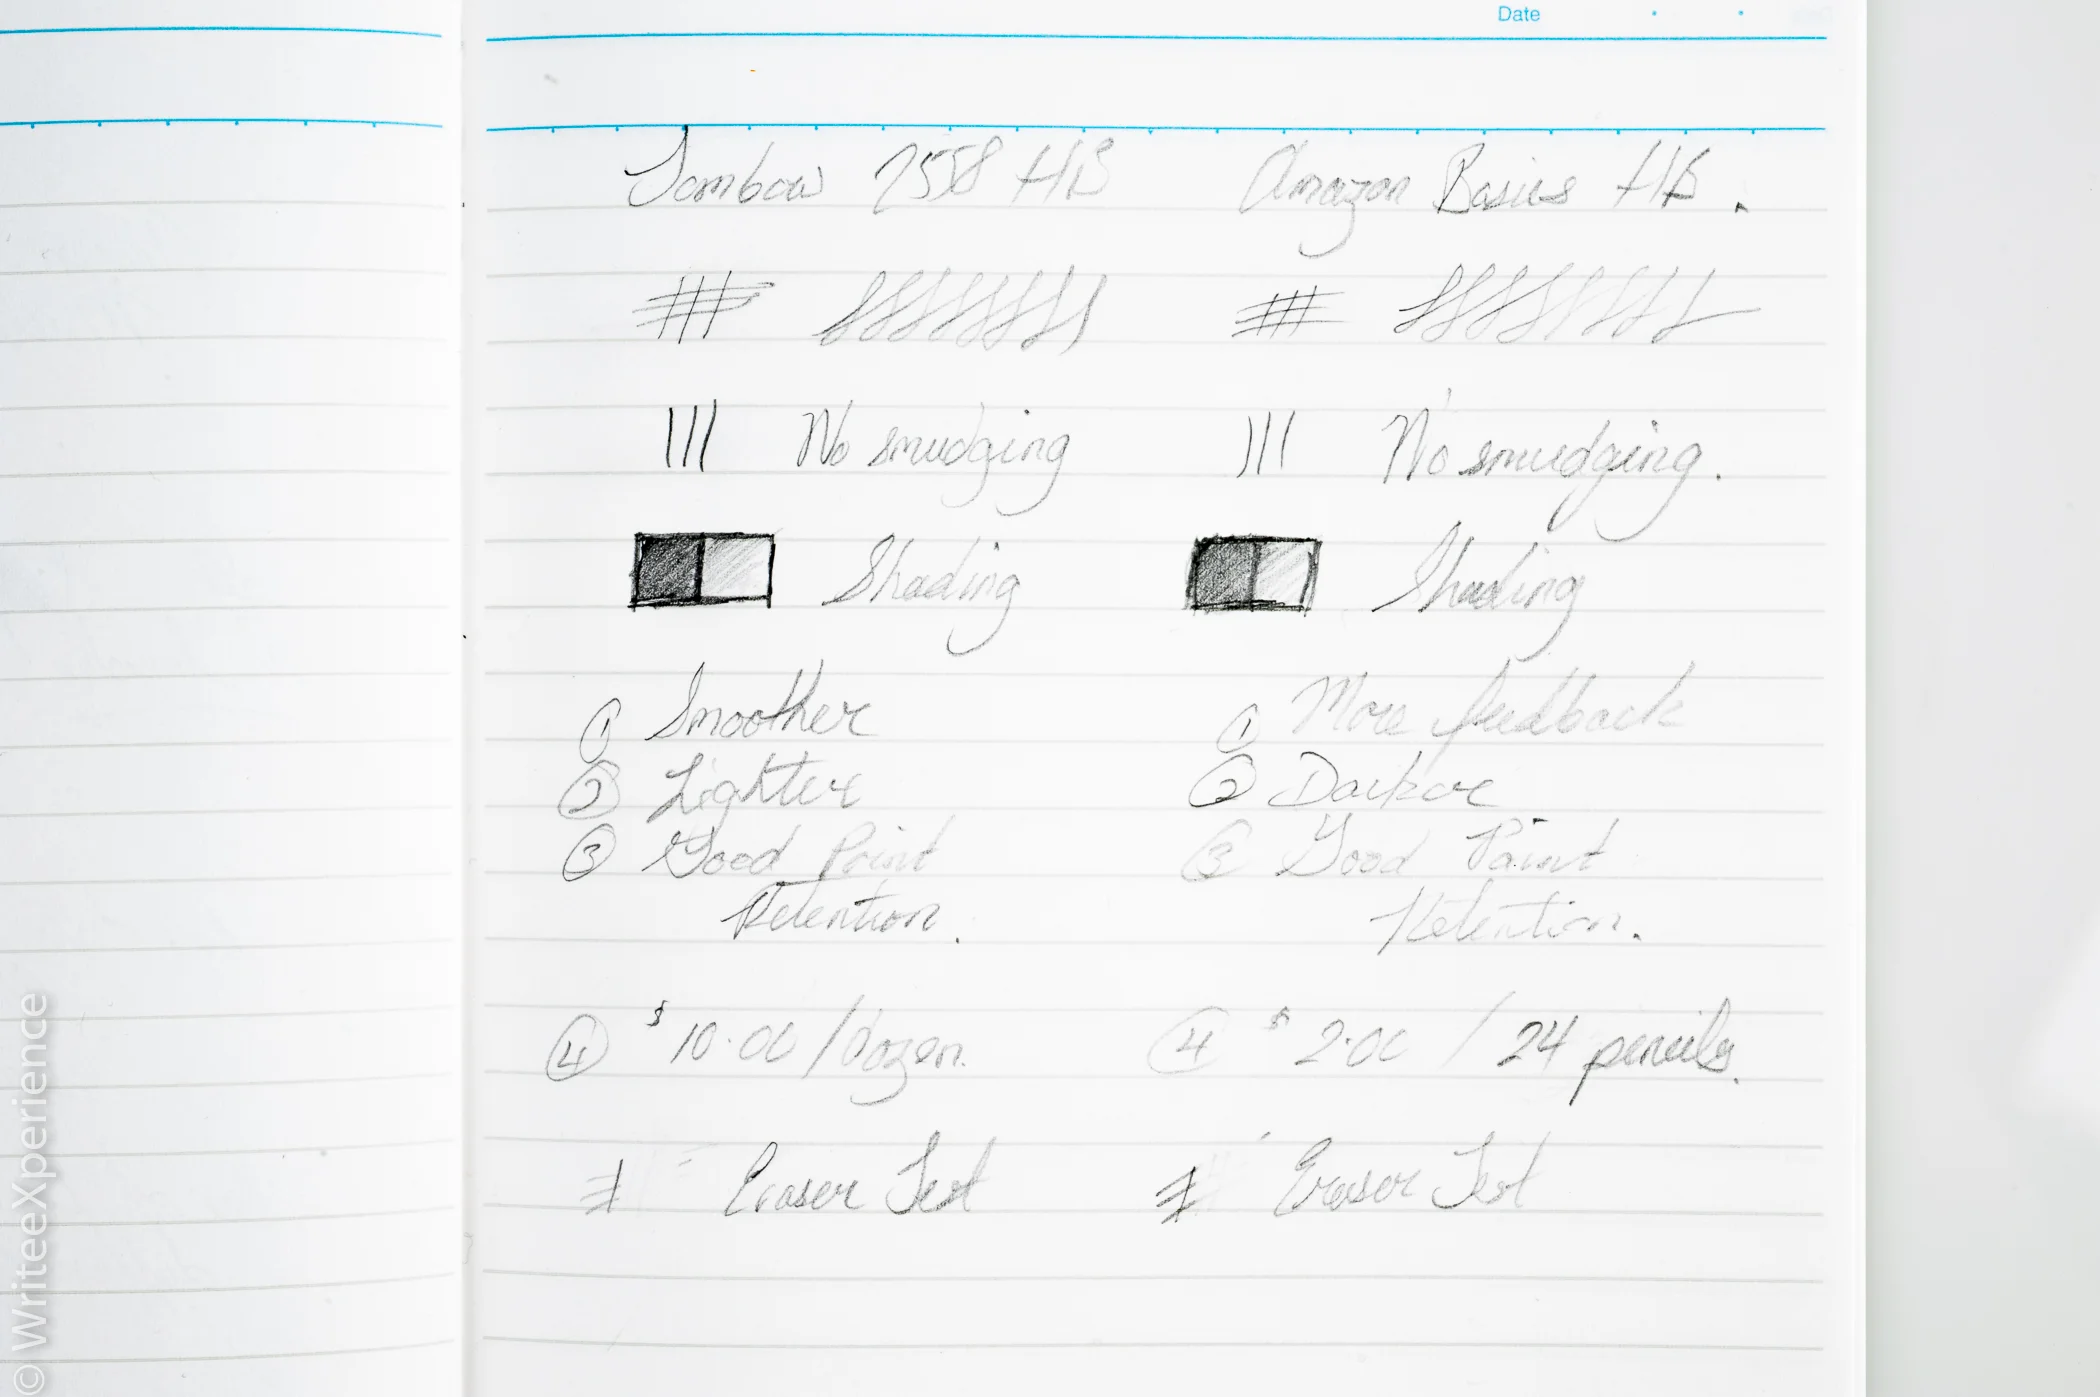 Date
Tombow 2558 HB Amazon Basics HB.
No smudging No smudging.
Shading Shading
① Smoother ① More feedback
② Lighter ② Darker
③ Good Point ③ Good Point
Retention. Retention.
④ $10.00/dozen. ④ $2.00 / 24 pencils.
Eraser Test Eraser Test
© WriteeXperience